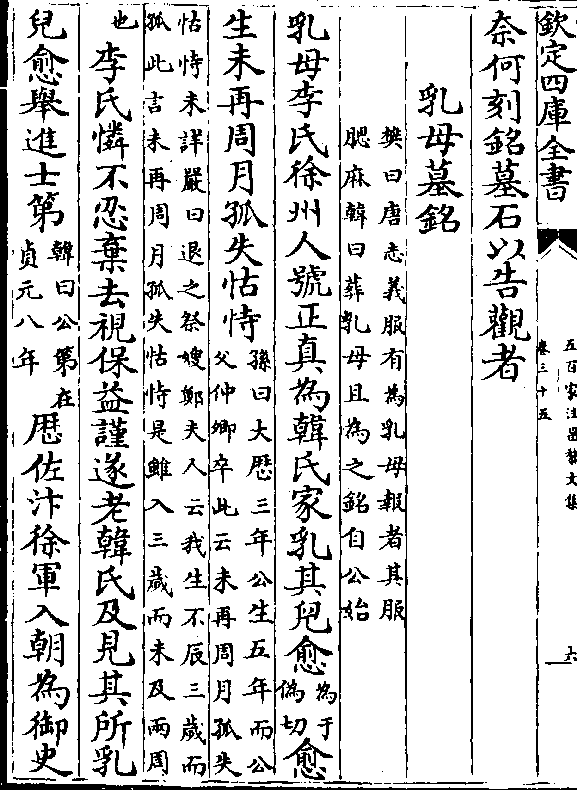 欽定四庫全書
五百家注昌黎文集
卷三十五
六
奈何刻銘墓石以告觀者
乳母墓銘
樊曰唐志義服有為乳母報者其服
腮麻韓曰葬乳母且為之銘自公始
乳母李氏徐州人號正真為韓氏家乳其兒愈為于偽切愈
生未再周月孤失怙恃孫曰大厯三年公生五年而公父仲卿卒此云未再周月孤失
怙恃未詳嚴曰退之祭嫂鄭夫人云我生不辰三歲而
孤此言未再周月孤失怙恃是雖入三歲而未及兩周
也李氏憐不忍棄去視保益謹遂老韓氏及見其所乳
兒愈舉進士第韓曰公第在貞元八年厯佐汴徐軍入朝為御史